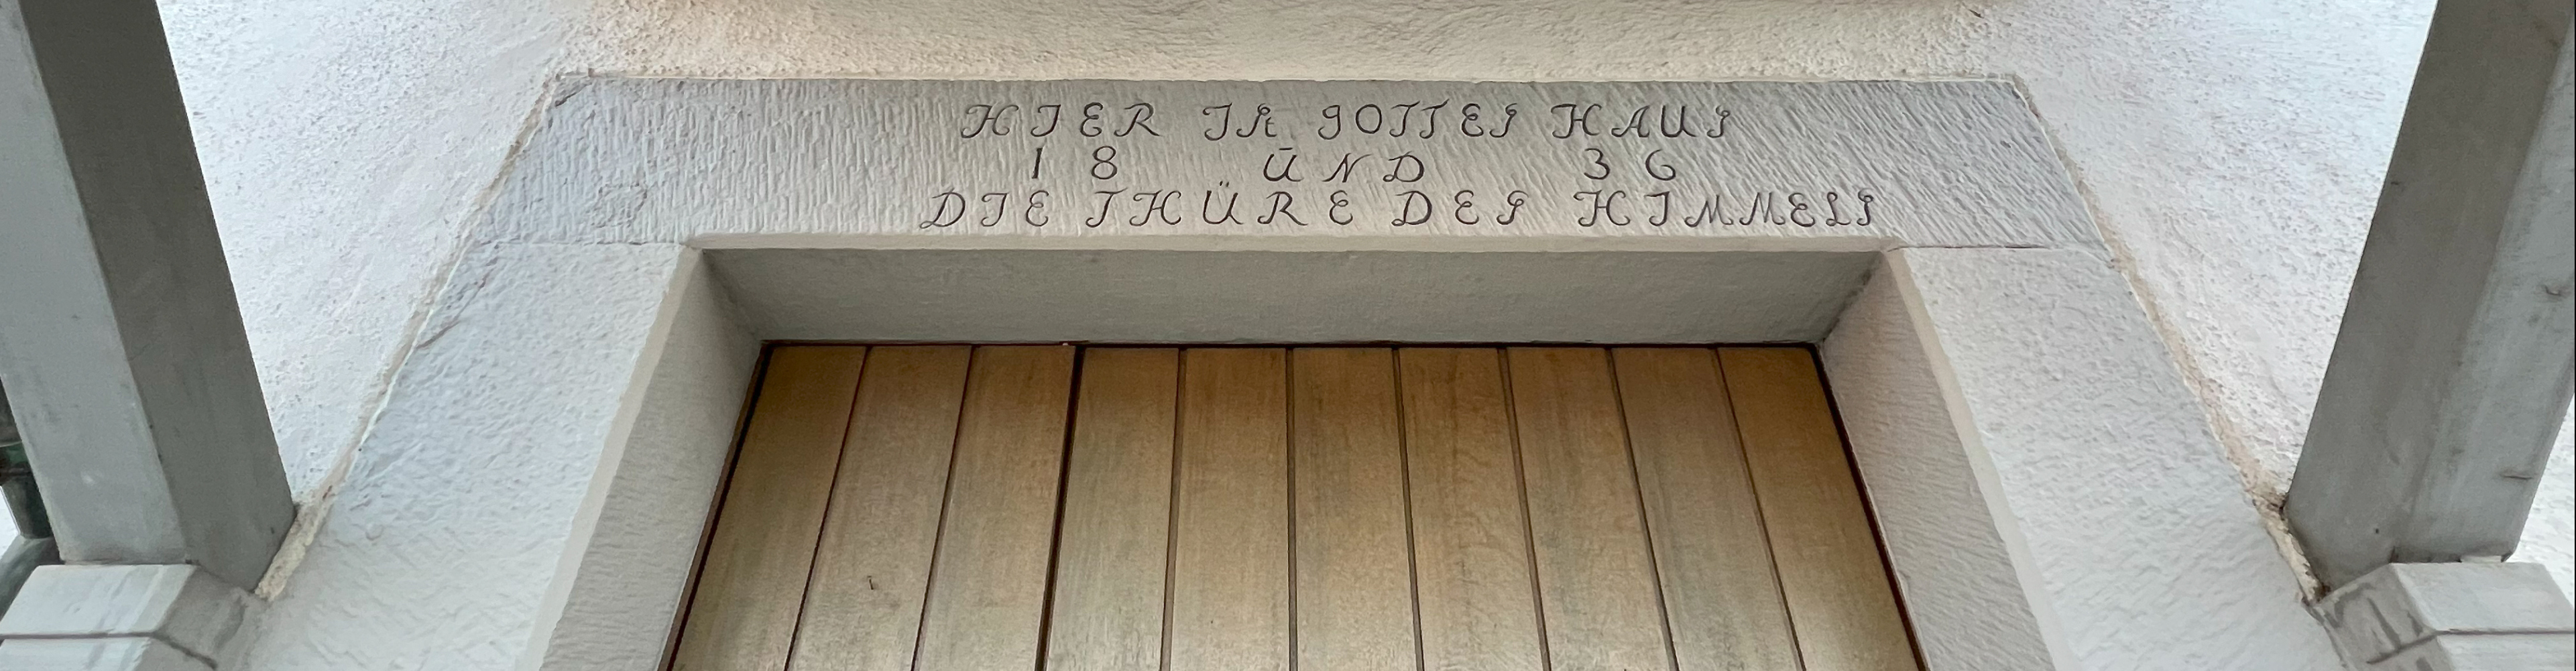 HIER IST GOTTES HAUS
18 ŪND 36
DIE THÜRE DES HIMMELS